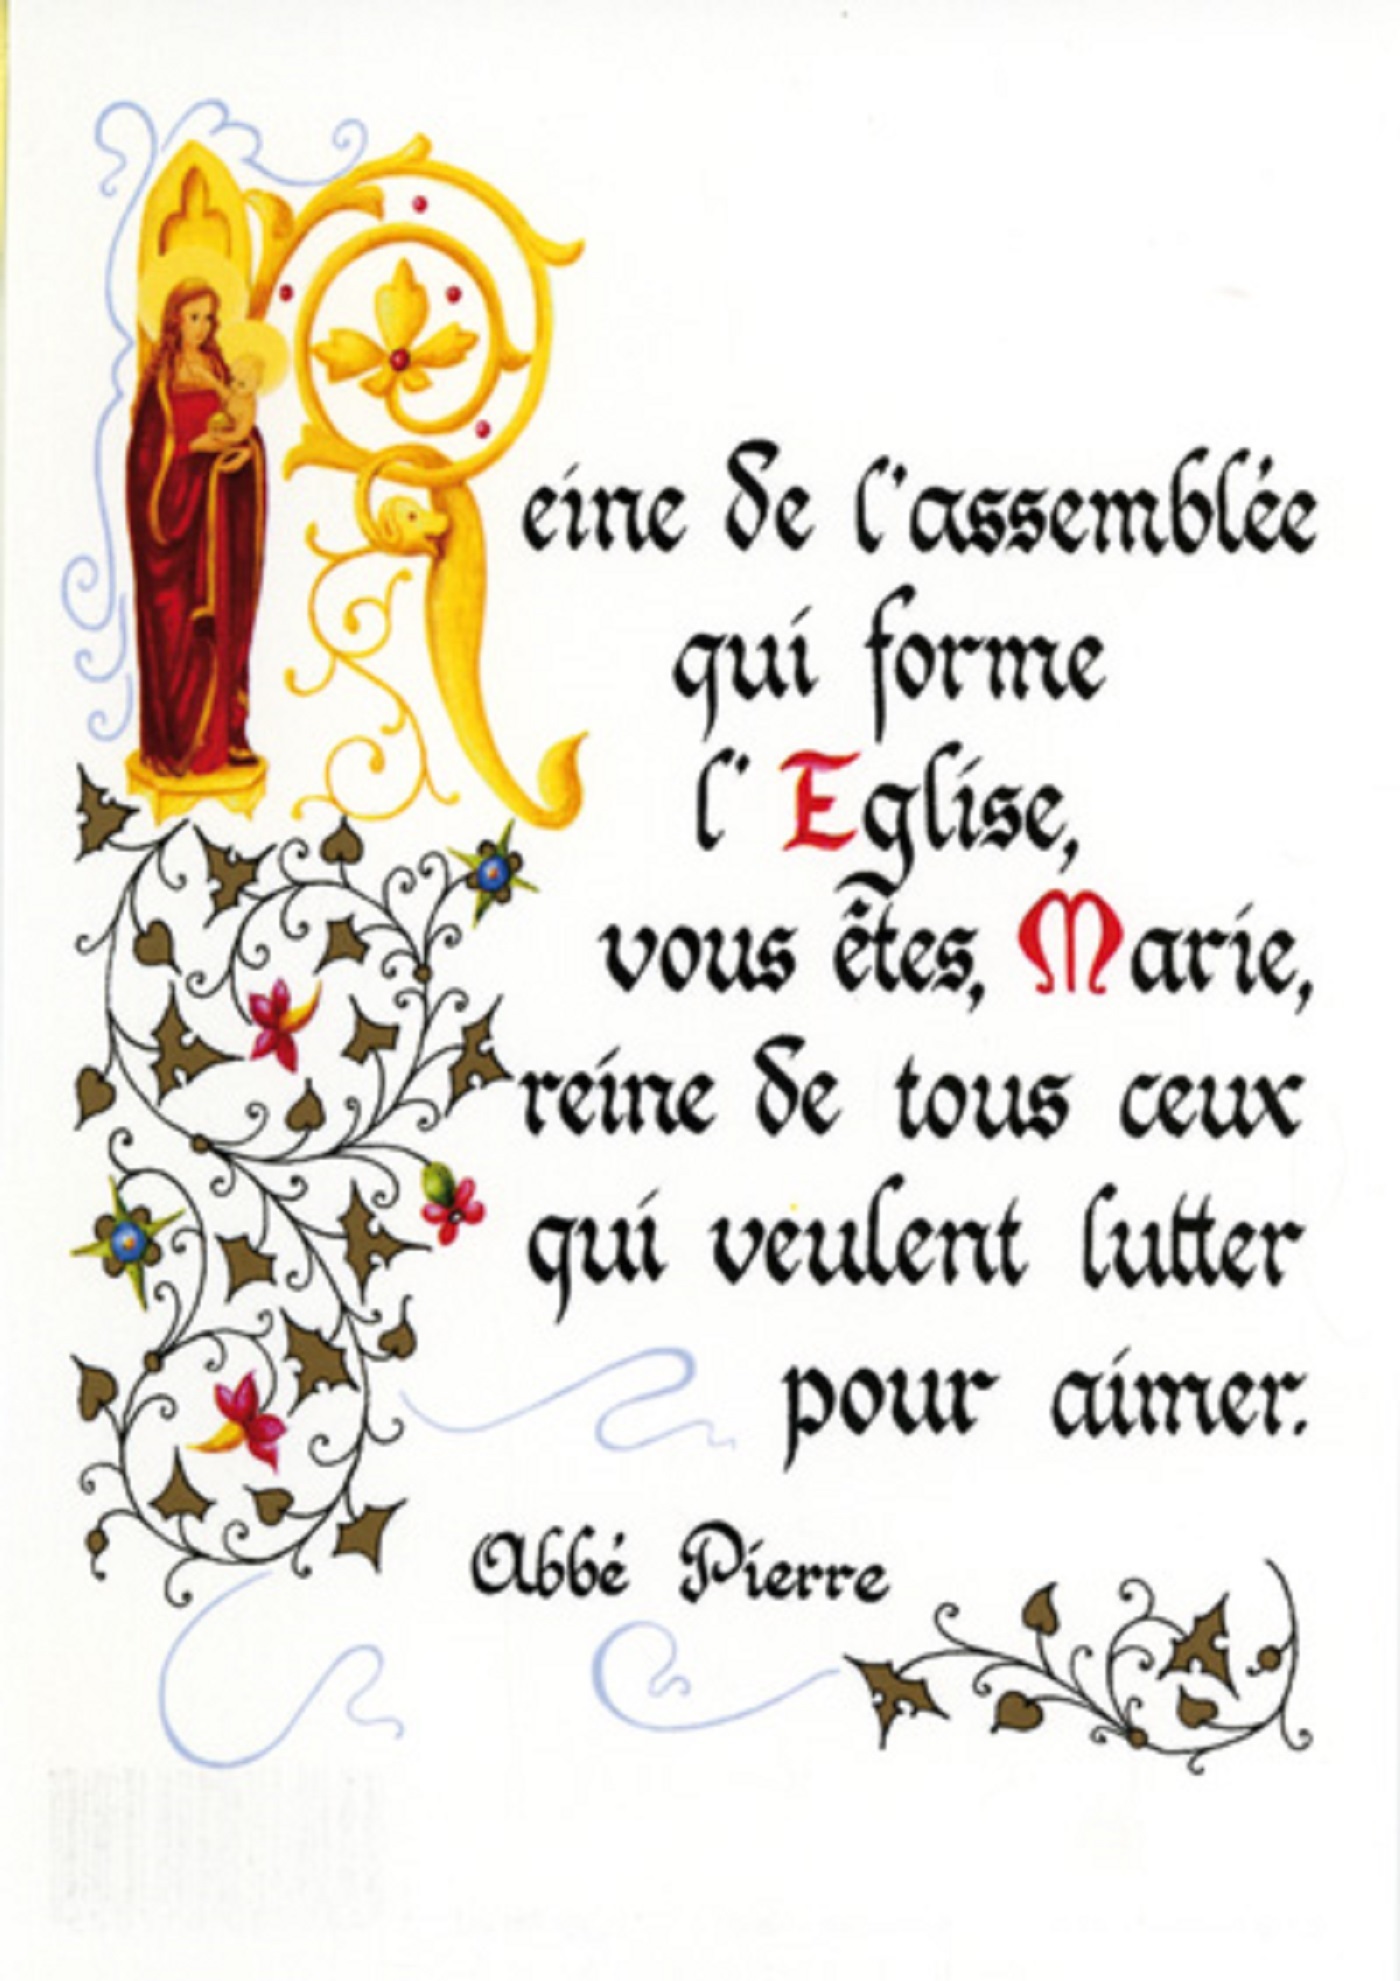 Reine de l'assemblée
qui forme
l'Eglise,
vous êtes, Marie,
reine de tous ceux
qui veulent lutter
pour aimer.
Abbé Pierre